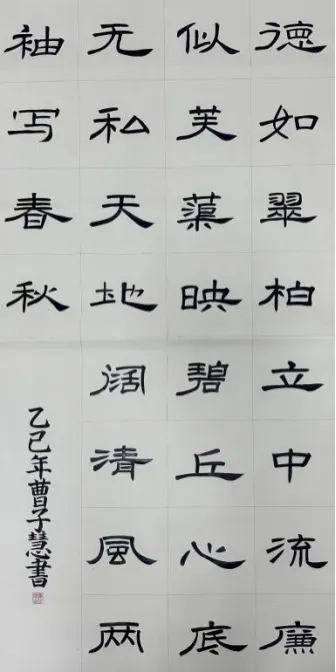 德如翠柏立中流廉
似芙蕖映碧丘心底
无私天地阔清風两
袖写春秋
乙巳年曹子慧書